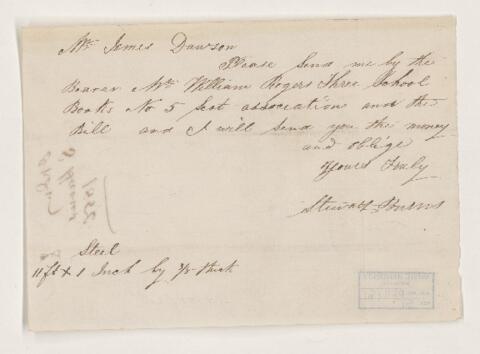 Mr James Dawson
Please Send me by the
Bearer Mr William Rogers Three School
Books No 5 Scot association and the
Bill and I will send you the money
and oblige
Yours Truly
Stewart Burns
1852
Steel
11 ft x 1 Inch by thick